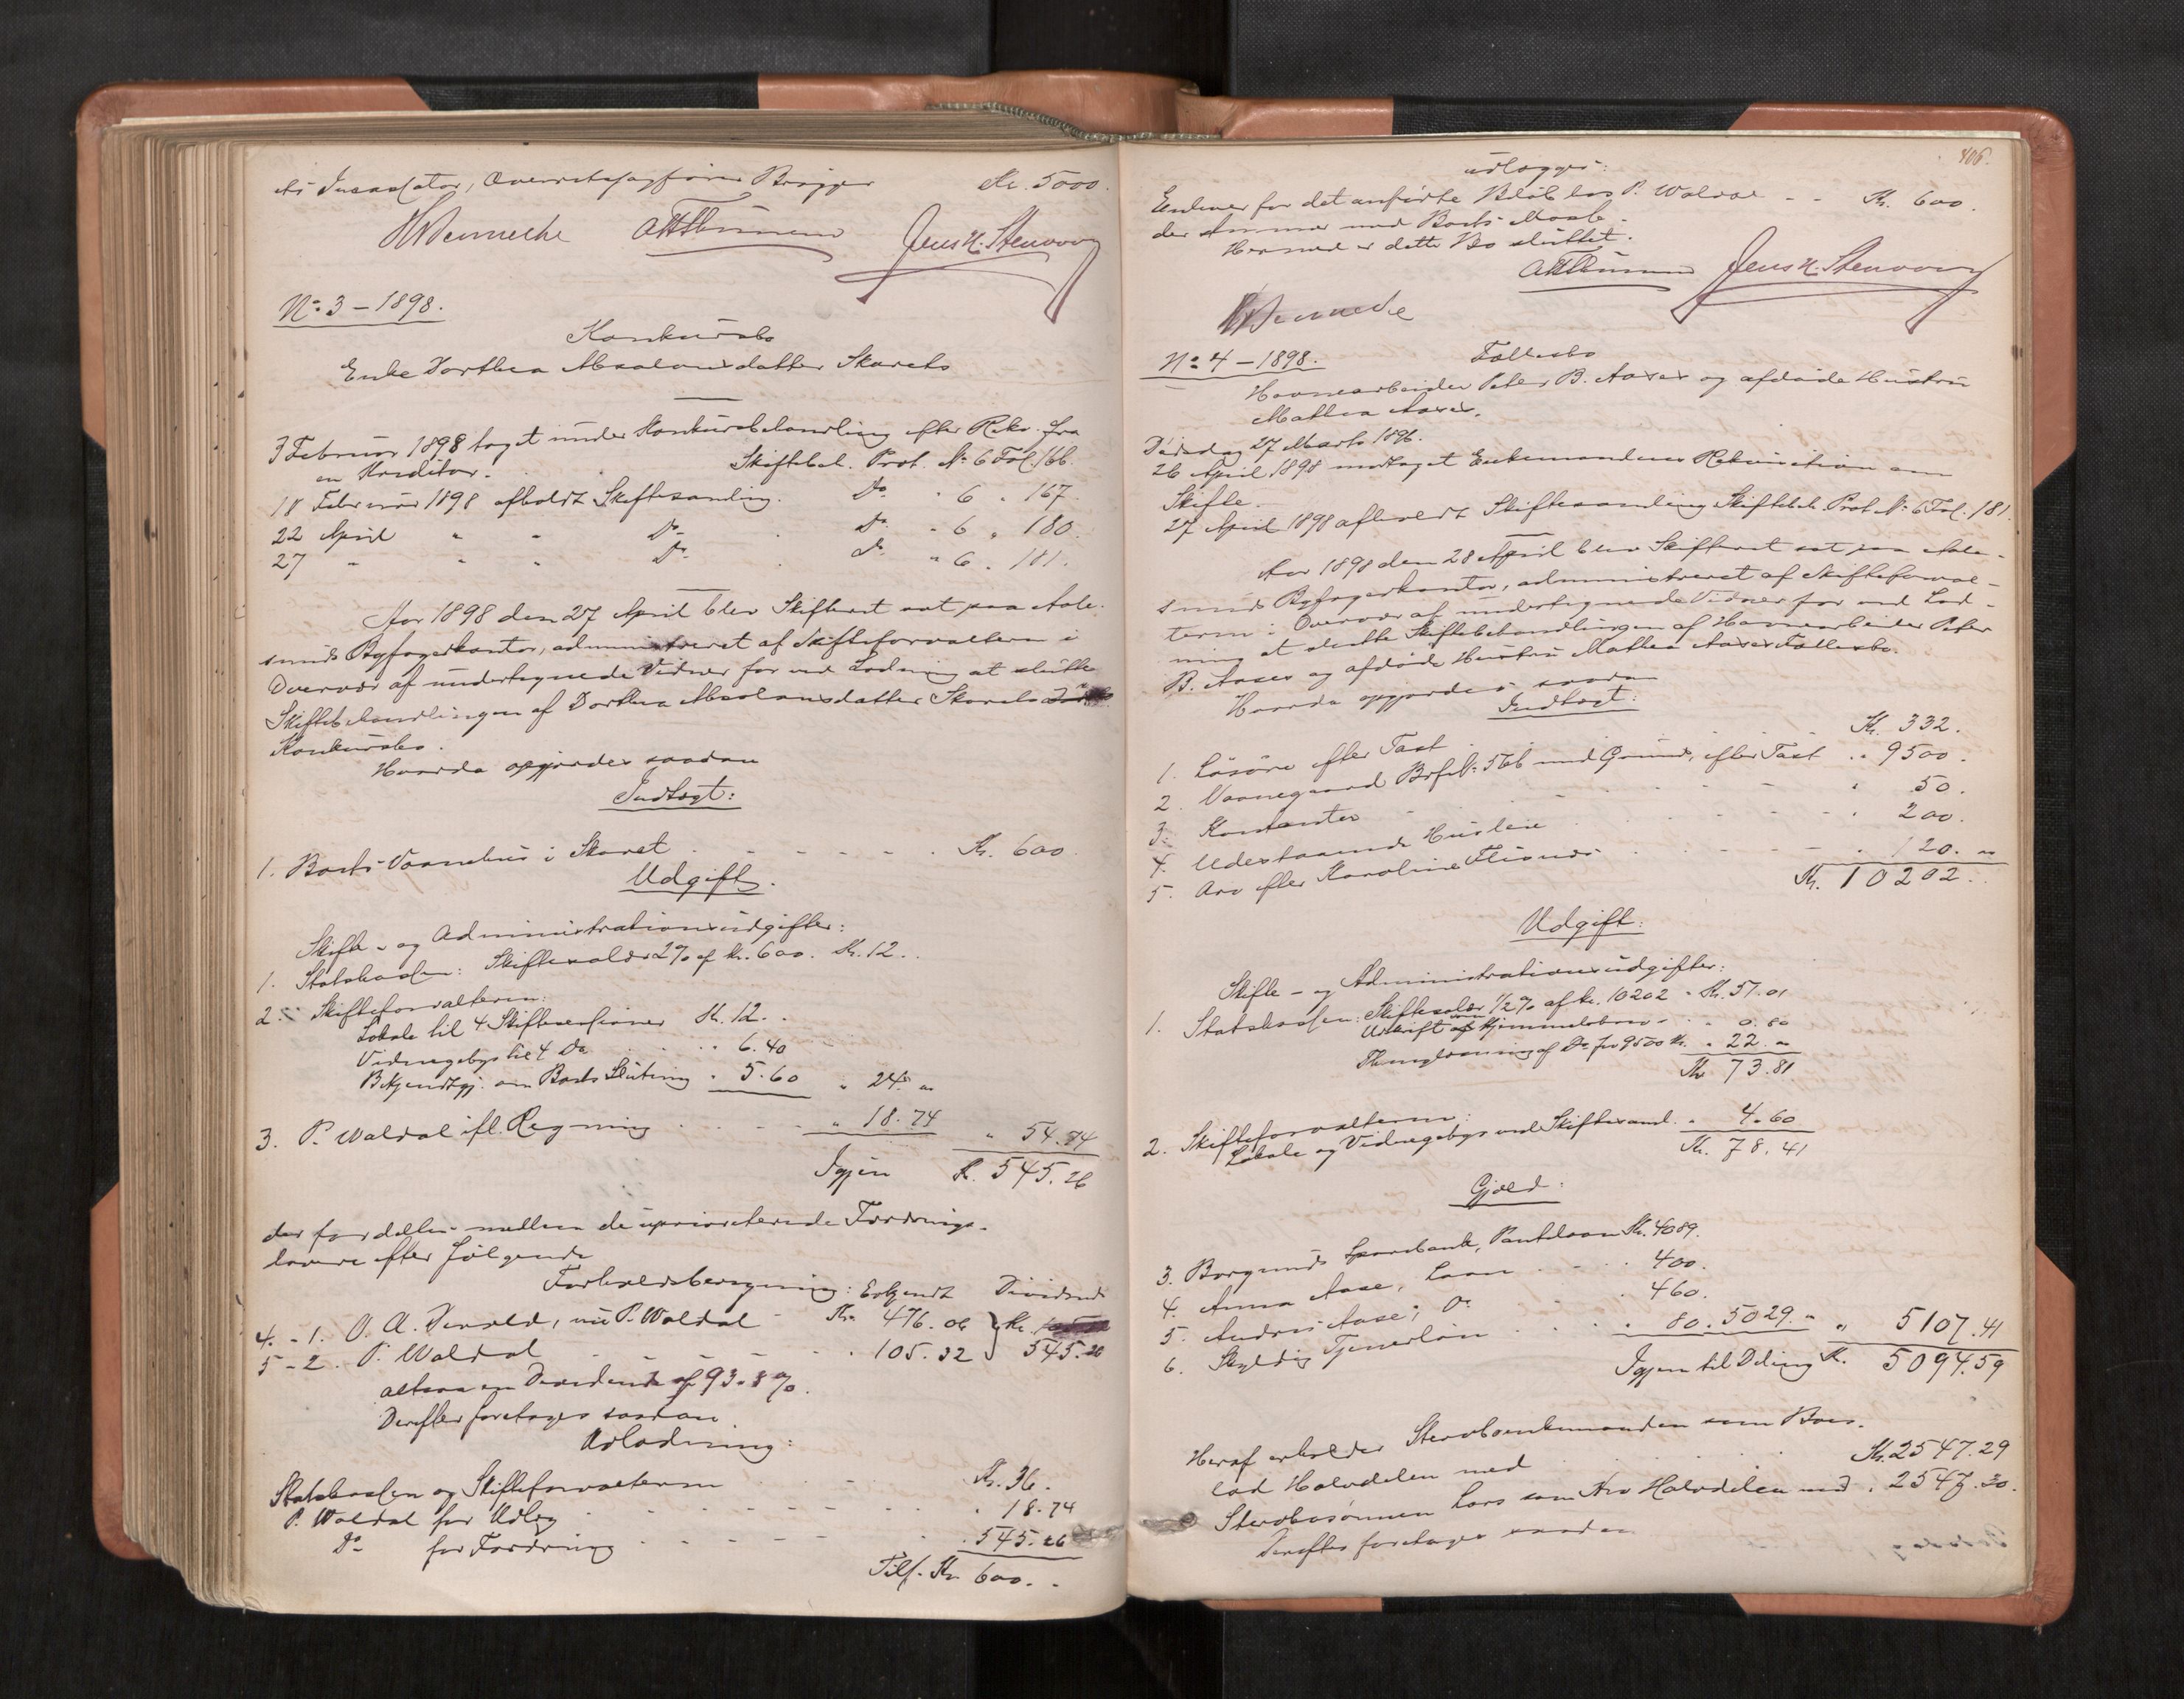 Overretssagfører Brygger Kr. 5000.
Jens N. Stenvaag
No 3 – 1898.
Konkursbo
Enke Dorthea Absalonsdatter Skarets
3 Februar 1898 taget under Konkursbehandling efter Rekv. fra
en Kreditor. Skiftebeh. Prot. No 6 Fol. 166.
18 Februar 1898 afholdt Skiftesamling. Do " 6 " 167.
22 April " " Do. Do. " 6 " 180.
27 " " " Do. Do. " 6 " 181.
Aar 1898 den 27 April blev Skifteret sat paa Aale-
sunds Byfogedkontor, administreret af Skifteforvalteren i
Overvær af undertegnede Vidner for ved Lodning at slutte
Skiftebehandlingen af Dorthea Absalonsdatter Skarets
Konkursbo.
Hvorda opgjordes saadan
Indtægt:
1. Boets Vaanehus i Skaret . . . . . . Kr. 600.
Udgift.
Skifte- og Administrationsudgifter:
1. Statskassen: Skiftesalær 2% af Kr. 600. Kr. 12. .
2. Skifteforvalteren:
Lokale til 4 Skiftesessioner Kr. 12. .
Vidnegebyr til 4 Do . . . . 6.40
Bekjendtgj. om Boets Slutning " 5.60 " 24. "
3. P. Waldal ifl. Regning . . . . . " 18.74 " 54.74
Igjen Kr. 545.26
der fordeles mellem de uprioriterede Fordrings-
havere efter følgende
Forholdsberegning: Erkjendt Dividende
4. - 1. O. A. Devold, nu P. Waldal - Kr. 476.06 } Kr.
5 - 2. P. Waldal . . . . . . 105.32 } 545.26
altsaa en Dividende af 93.8%.
Derefter foretages saadan
Udlodning:
Statskassen og Skifteforvalteren . . . Kr. 36.
P. Waldal for Udlæg . . . . . . . 18.74
Do for Fordring . . . . . . 545.26
Tils. Kr. 600. .
406.
udlægges:
Enhver for det anførte Beløb hos P. Waldal - - Kr. 600.
der Summer med Boets Masse.
Hermed er dette Bo sluttet.
Jens N. Stenvaag
No 4 – 1898. Fællesbo
Havnearbeider Peter B. Aases og afdøde Hustru
Mathea Aases.
Dødsdag 27 Marts 1896.
26 April 1898 modtaget Enkemandens Rekvisition om
Skifte.
27 April 1898 afholdt Skiftesamling Skiftebeh. Prot. No 6 Fol. 181.
Aar 1898 den 28 April blev Skifteret sat paa Aale-
sunds Byfogedkontor, administreret af Skifteforval-
teren i Overvær af undertegnede Vidner for ved Lod-
ning at slutte Skiftebehandlingen af Havnearbeider Peter
B. Aases og afdøde Hustru Mathea Aases Fællesbo.
Hvorda opgjordes saadan
Indtægt:
1. Løsøre efter Taxt . . . . . . Kr. 332.
2. Vaanegaard Brf. No 566 med Grund, efter Taxt " " 9500.
3. Kontanter - . . . . . . " 50.
4. Udestaaende Husleie . . . . . . 200.
5. Arv efter Karoline . . . . . . 120. "
Kr. 10202. .
Udgift:
Skifte- og Administrationsudgifter:
1. Statskassen: Skiftesalær 1/2% af Kr. 10202 - Kr. 51.01
Udskrift som Hjemmelsbrev - . . 0.80
Thinglæsning af Do for 9500 Kr. " 22. "
Kr. 73.81.
2. Skifteforvalteren:
Lokale og Vidnegebyr ved Skiftesaml. " 4.60
Kr. 78.41
Gjæld:
3. Borgunds Sparebank, Pantelaan Kr. 4089.
4. Anna Aase, Laan . . . . . 400.
5. Anders Aase, Do . . . . . 460.
6. Skyldig Tjenerløn . . . . . 80. 5029. " " 5107.41
Igjen til Deling Kr. 5094.59
Heraf erholder Stervboenkemanden som Boes-
lod Halvdelen med . . . . . . Kr. 2547.29
Stervbosønnen Lars som Arv Halvdelen med . 2547.30.
Derefter foretages saadan